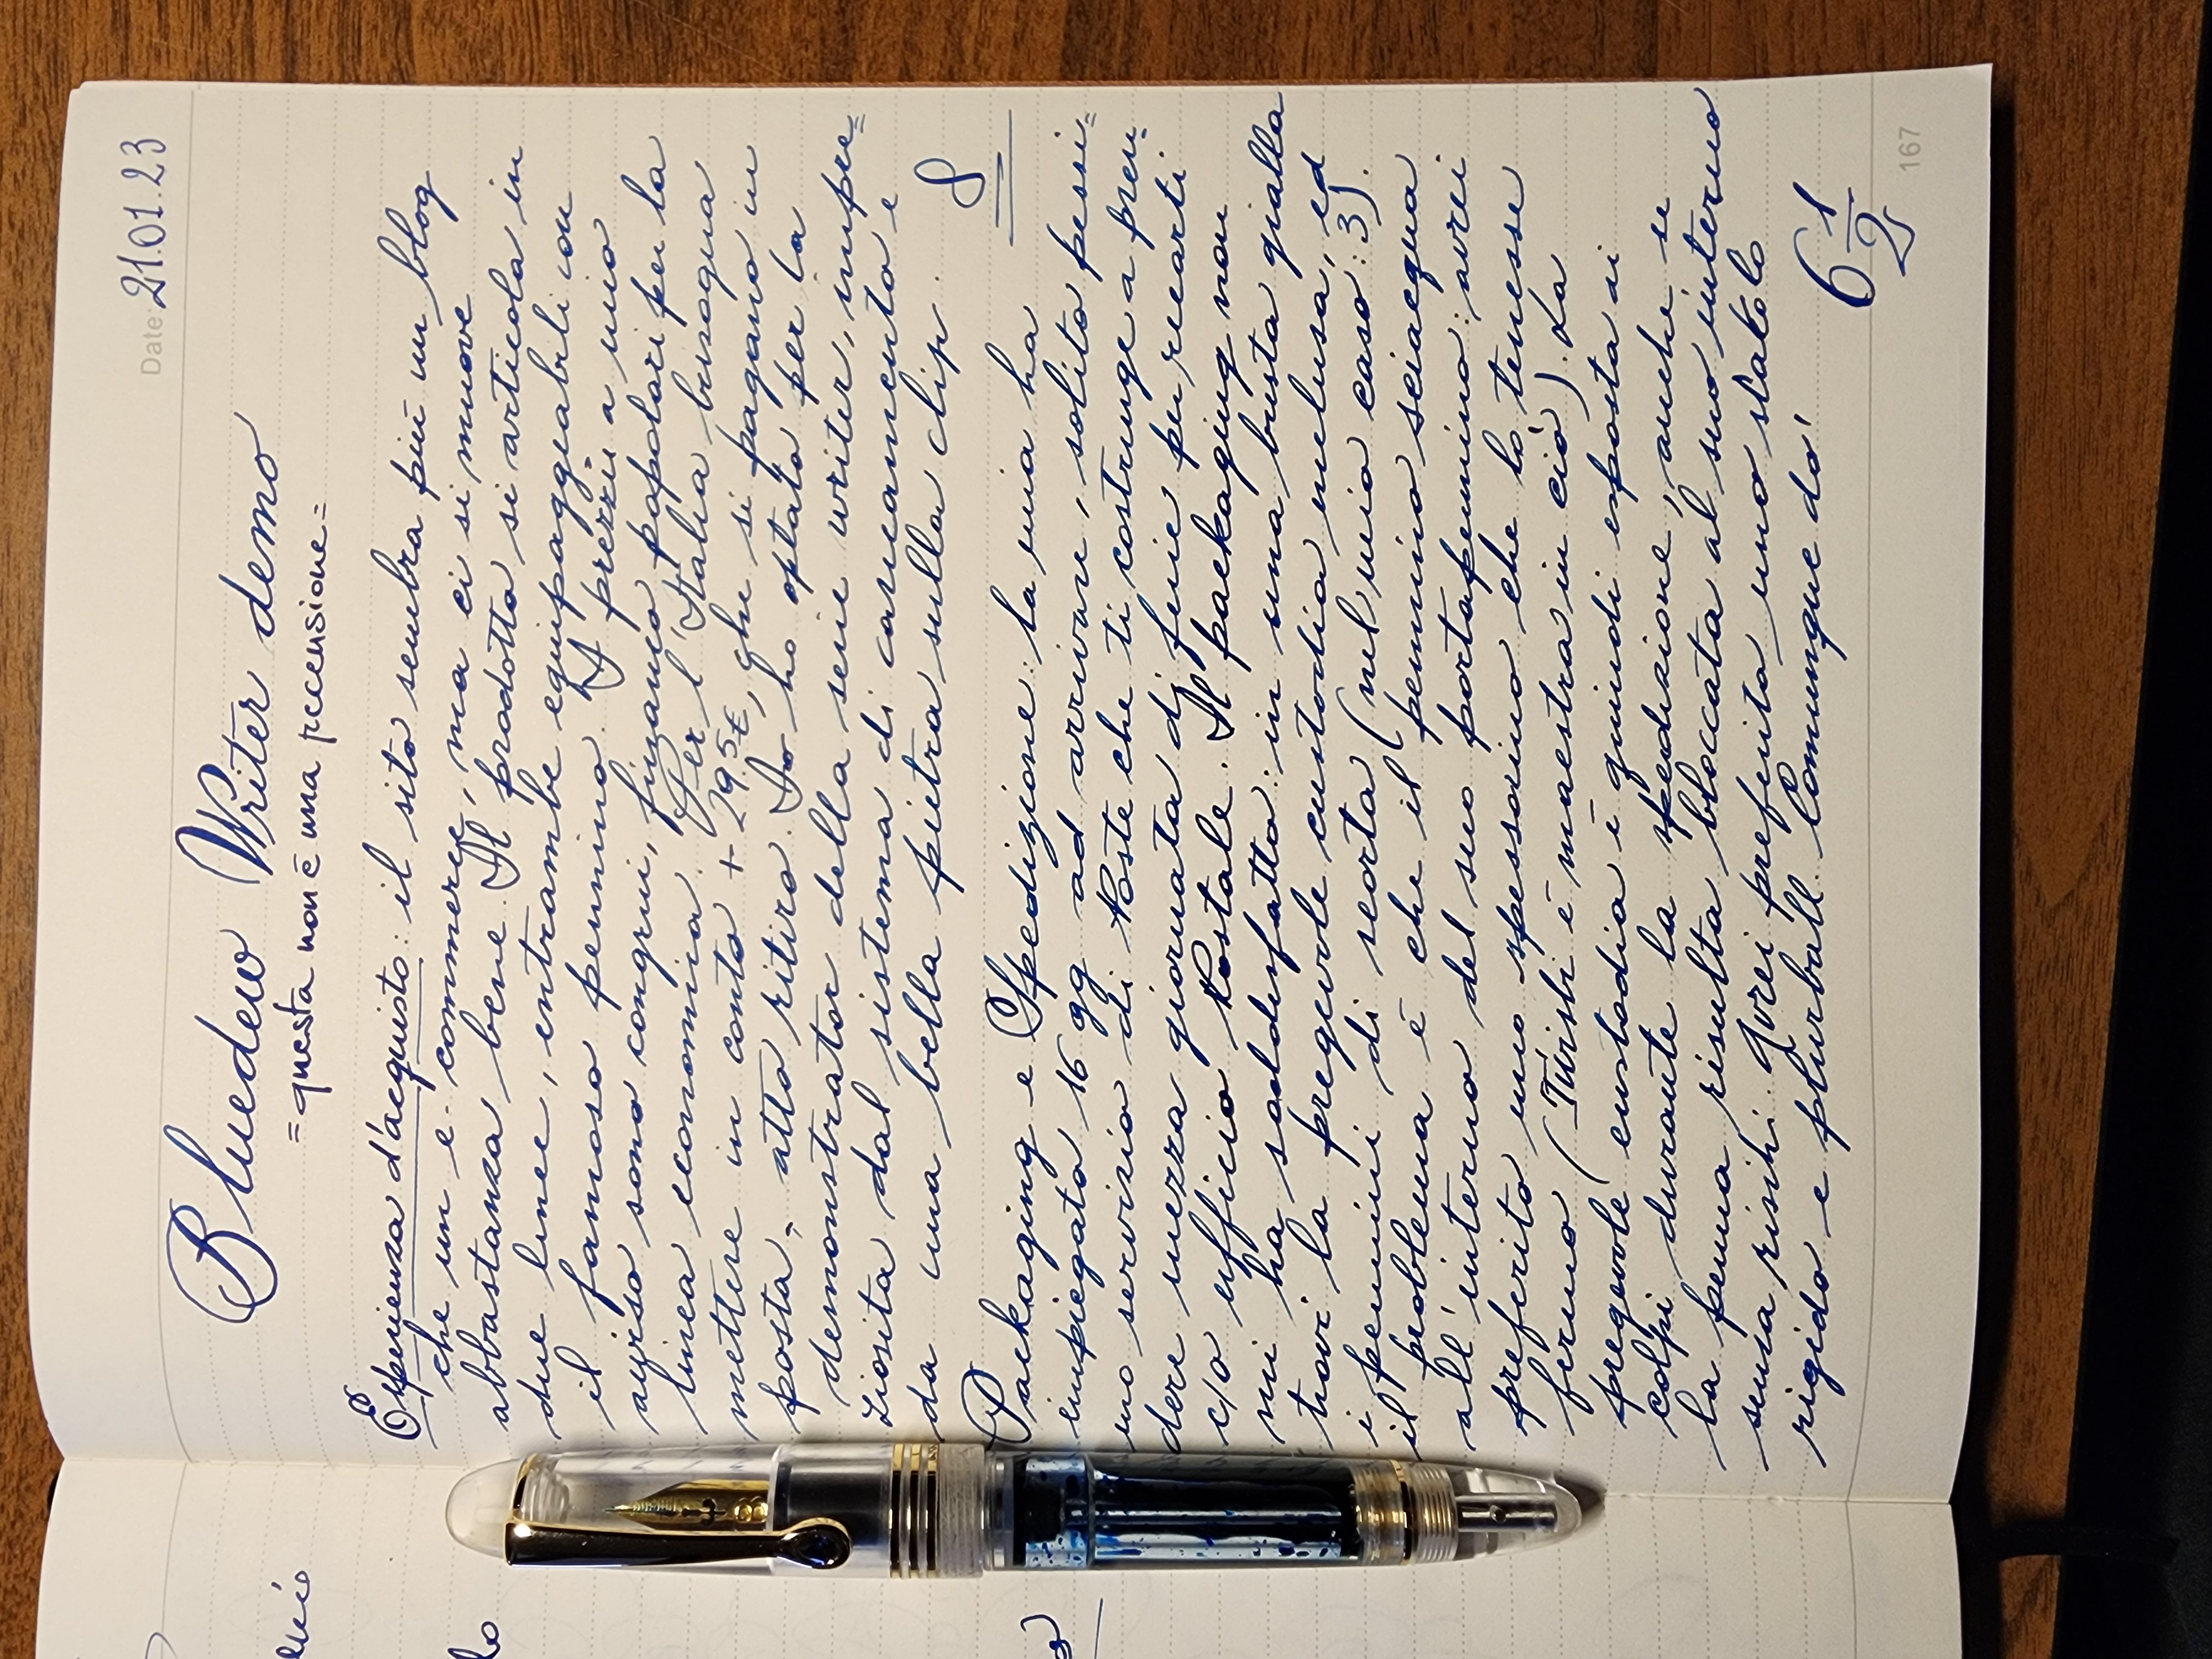 Date: 21.01.23
Bluedew Writer demo
= questa non è una recensione =
Esperienza d'acquisto: il sito sembra più un blog
che un e-commerce, ma ci si muove
abbastanza bene. Il prodotto si articola in
due linee, entrambe equipaggiabili con
il famoso pennino. I prezzi a mio
avviso sono congrui, financo popolari per la
linea economica. Per l'Italia bisogna
mettere in conto + 29.5€, che si pagano in
posta, atto ritiro. Io ho optato per la
demonstrator della serie writer, impre=
ziosita dal sistema di caricamento e
da una bella pietra sulla clip.
8
Packaging e Spedizione: la mia ha
impiegato 16 gg ad arrivare, solito pessi=
mo servizio di Poste che ti costringe a pren=
dere mezza giornata di ferie per recarti
c/o ufficio Postale. Il packaging non
mi ha soddisfatto: in una busta gialla
trovi la pregevole custodia inclusa, ed
i pennini di scorta (nel mio caso: 3).
il problema è che il pennino sciacqua
all'interno del suo portapennino: avrei
preferito uno spessorino che lo tenesse
fermo (Türisli è maestra in ciò). La
pregevole custodia è quindi esposta ai
colpi durante la spedizione, anche se
la penna risulta bloccata al suo interno
senza rischi. Avrei preferito uno scatolo
rigido e pluriball. Comunque do'
6 1/2
167
lo